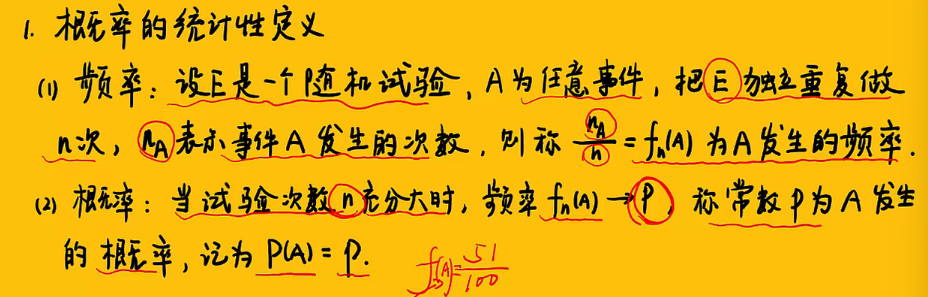 1. 概率的统计性定义
(1) 频率：设E是一个随机试验，A为任意事件，把E独立重复做
n次，n_A表示事件A发生的次数，则称 n_A/n = f_n(A) 为A发生的频率.
(2) 概率：当试验次数n充分大时，频率 f_n(A)→P，称常数P为A发生
的概率，记为 P(A)=P.
f(A)=51/100